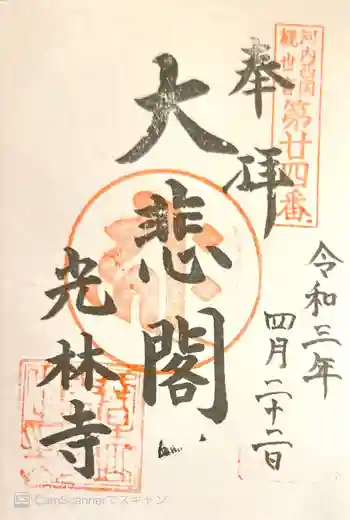 河内西国
観世音
第廿四番
奉拝
大悲閣
光林寺
令和三年
四月二十二日
CamScannerでスキャン